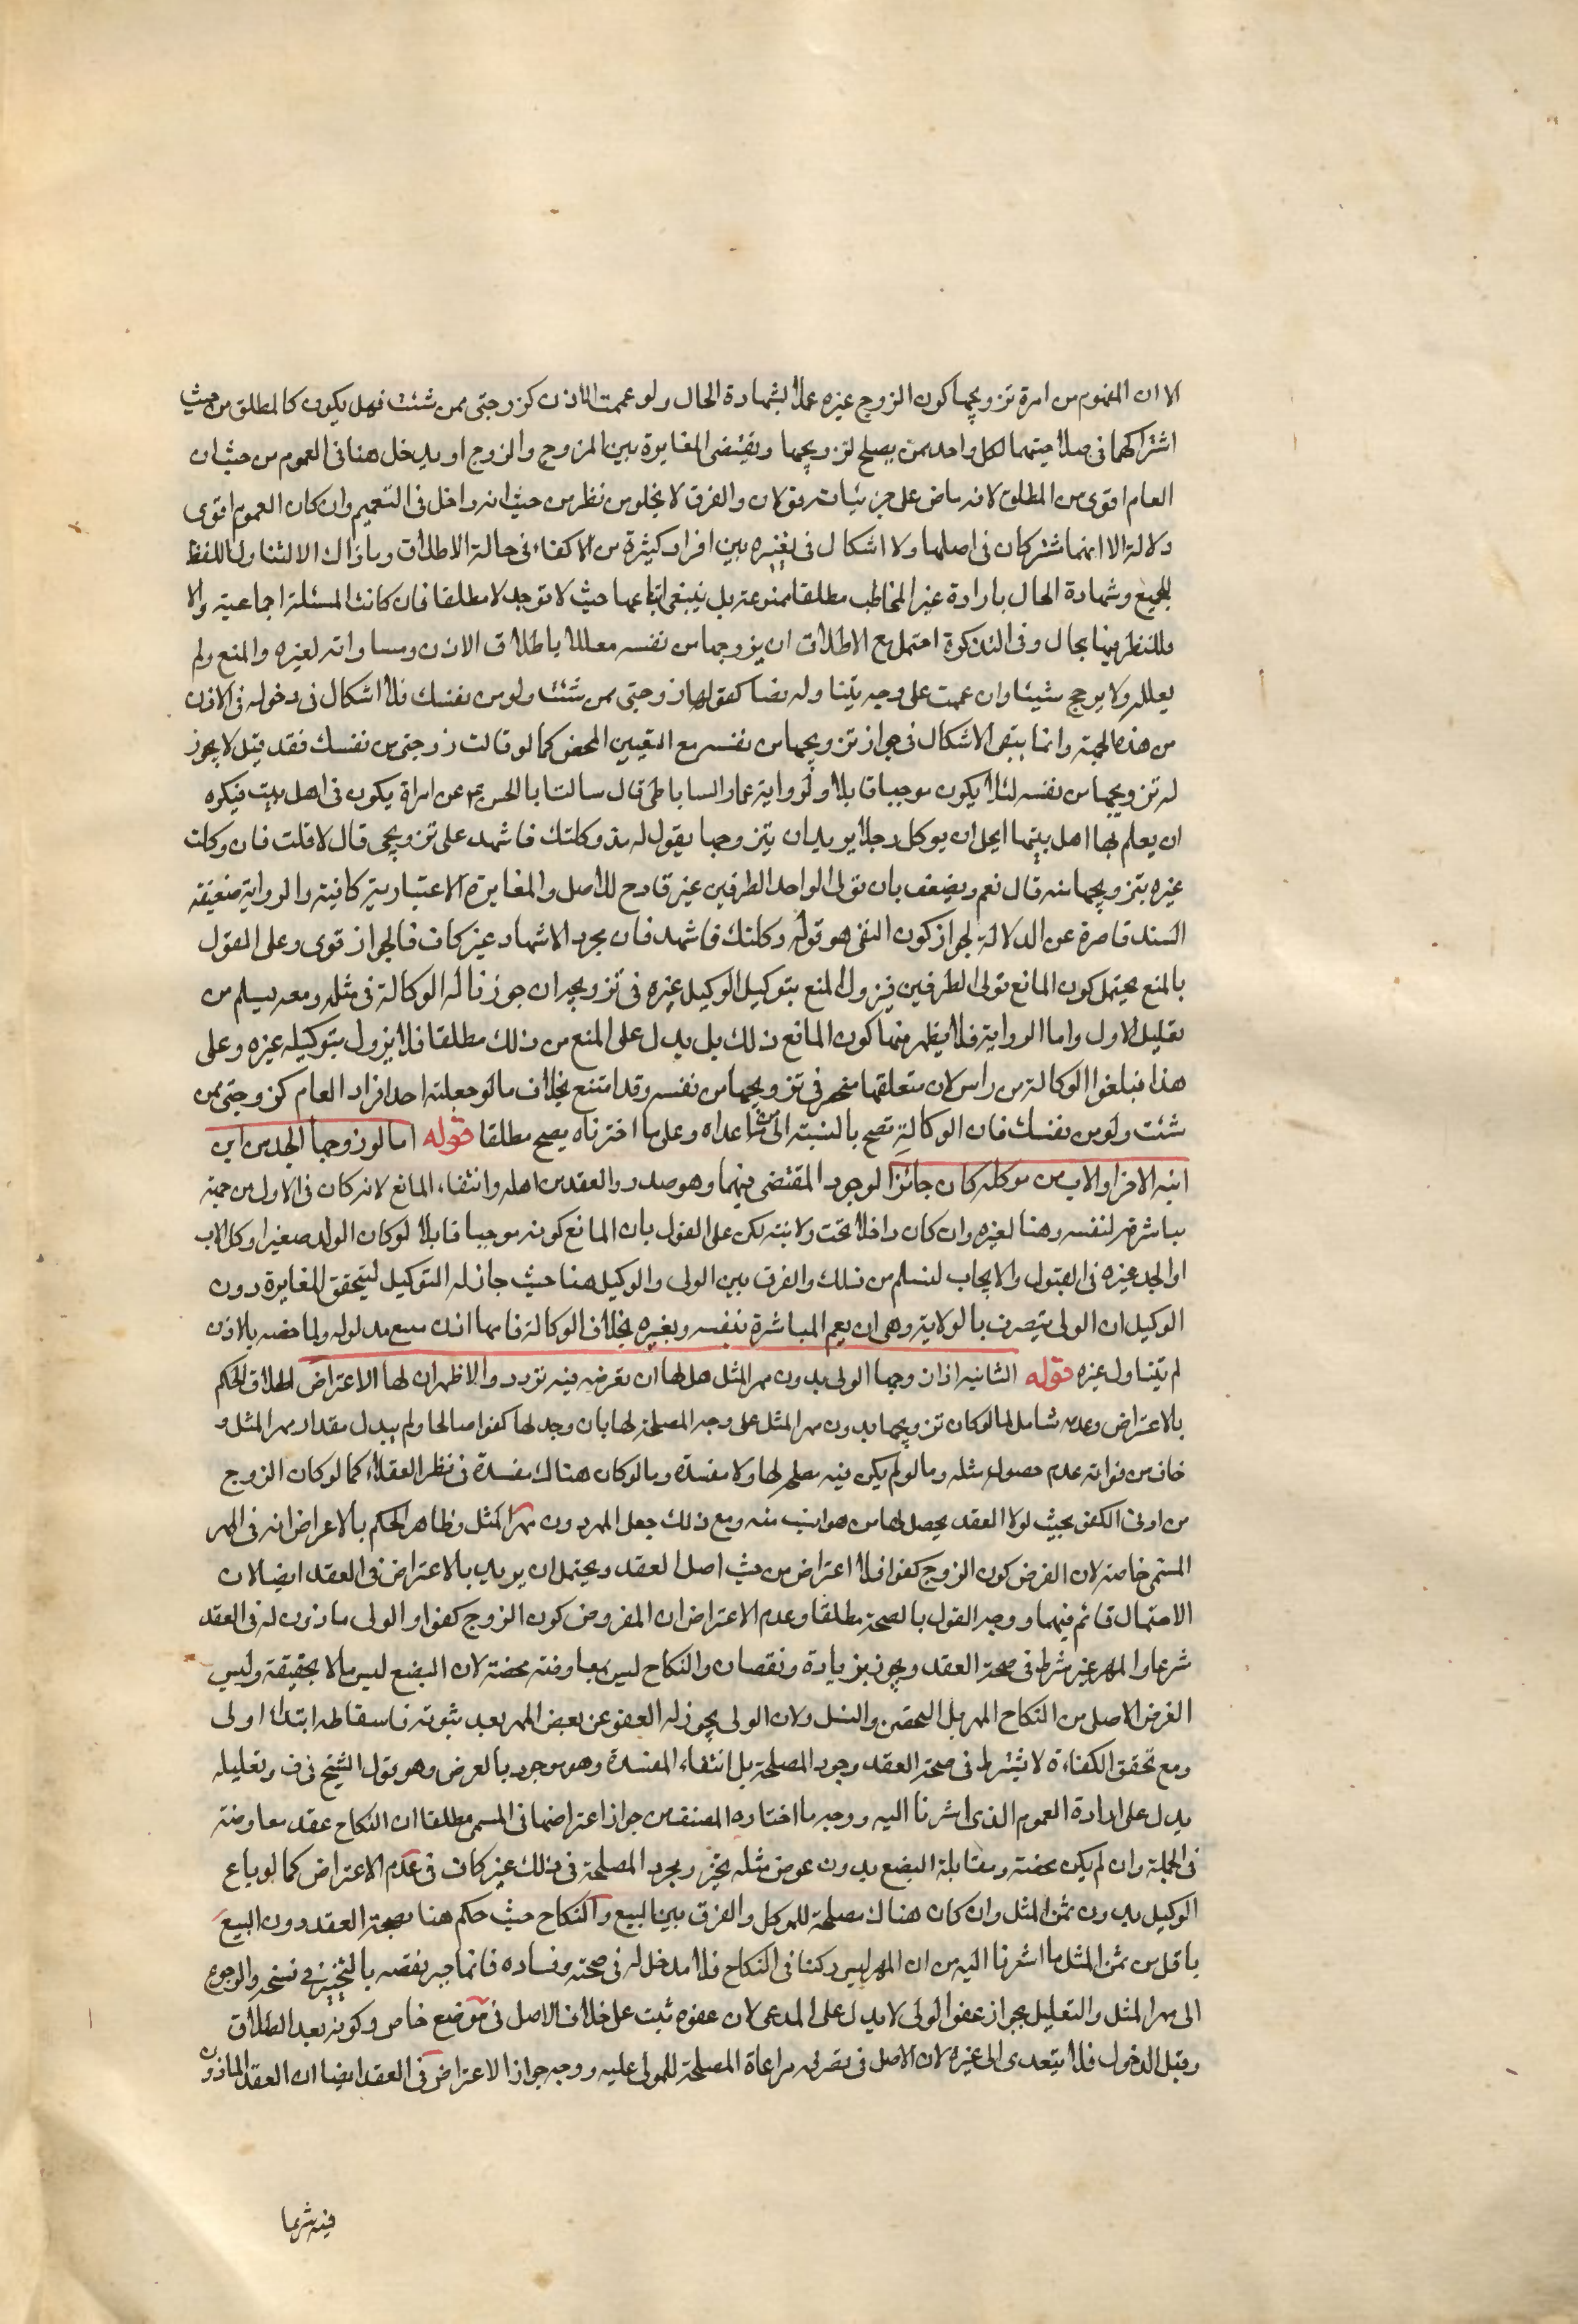 الا ان المفهوم من امره تزويجها كون الزوج غيره عملا بشهادة الحال ولو عممت الاذن كزوجني ممن شئت فهل يكون كالمطلق من حيث
اشتراكهما في صلاحيتهما لكل واحد ممن يصلح لتزويجها ويقتضي المغايرة بين المزوج والزوج او يدخل هنا في العموم من حيث ان
العام اقوى من المطلق لانه ناض على جزئياته قولان والفرق لا يخلو من نظر من حيث انه داخل في التعميم وان كان العموم اقوى
دلالة الا انهما مشتركان في اصلها ولا اشكال في تخييره بين افراد كثيرة من الاكفاء في حالة الاطلاق وما ذاك الا لتناول اللفظ
للجميع وشهادة الحال بارادة غير المخاطب مطلقا ممنوعة بل ينبغي اتباعها حيث لا توجد لا مطلقا فان كانت المسئلة اجماعية والا
فللنظر فيها مجال وفي التذكرة احتمل مع الاطلاق ان يزوجها من نفسه معللا باطلاق الاذن ومساواته لغيره والمنع ولم
يعلله ولا يرجح شيئا وان عممت على وجه يتناوله نصا كقولها زوجني ممن شئت ولو من نفسك فلا اشكال في دخوله في الاذن
من هذه الجهة وانما يبقى الاشكال في جواز تزويجها من نفسه مع التعيين المحض كما لو قالت زوجني من نفسك فقد قيل لا يجوز
له تزويجها من نفسه لئلا يكون موجبا قابلا ولرواية عمار الساباطي قال سالت ابا الحسن ع عن امراة يكون في اهل بيت فيكره
ان يعلم بها اهل بيتها ايحل ان يوكل رجلا يريد ان يتزوجها يقول له قد وكلتك فاشهد على تزويجي قال لا قلت فان وكلت
غيره بتزويجها منه قال نعم ويضعف بان تولى الواحد الطرفين غير قادح للاصل والمغايرة الاعتبارية كافية والرواية ضعيفة
السند قاصرة عن الدلالة لجواز كون النفي هو قوله وكلتك فاشهد فان مجرد الاشهاد غير كاف فالجواز قوى وعلى القول
بالمنع يحتمل كون المانع تولى الطرفين فيزول المنع بتوكيل الوكيل غيره في تزويجه ان جوزنا له الوكالة في مثله ومعه يسلم من
تعليل الاول واما الرواية فلا يظهر منها كون المانع ذلك بل يدل على المنع من ذلك مطلقا فلا يزول بتوكيله غيره وعلى
هذا فبلغوا الوكالة من راس لان متعلقها منحصر في تزويجها من نفسه وقد امتنع بخلاف ما لو جعلته احد افراد العام كزوجني ممن
شئت ولو من نفسك فان الوكالة تصح بالنسبة الى من عداه وعلى ما اخترناه يصح مطلقا قوله اما لو زوجها الجد من ابن
ابنه الاخر او الاب من موكله كان جائزا لوجود المقتضى فيهما وهو صدور العقد من اهله وانتفاء المانع لانه كان في الاول من جهة
مباشرته لنفسه وهنا لغيره وان كان داخلا تحت ولايته لكن على القول بان المانع كونه موجبا قابلا لو كان الولد صغيرا وكل الاب
او الجد غيره في القبول والايجاب لنسلم من ذلك والفرق بين الولي والوكيل هنا حيث جاز له التوكيل ليتحقق المغايرة دون
الوكيل ان الولي يتصرف بالولاية وهي ان يعم المباشرة بنفسه وبغيره بخلاف الوكالة فانها اذن يتبع مدلوله ولما خصه بالاذن
لم يتناول غيره قوله الثانية اذا زوجها الولي بدون مهر المثل هل لها ان تعترض فيه تردد والاظهر ان لها الاعتراض اطلاق الحكم
بالاعتراض وعدمه شامل لما لو كان تزويجها بدون مهر المثل على وجه المصلحة لها بان وجد لها كفوا صالحا ولم يبدل مقدار مهر المثل و
خاف من فواته عدم حصول مثله وما لو لم يكن فيه مصلحة لها ولا مفسدة وما لو كان هناك مفسدة في نظر العقلاء كما لو كان الزوج
من ادنى الكفو بحيث لولا العقد يحصل لها من هو انسب منه ومع ذلك جعل المهر دون مهر المثل وظاهر الحكم بالاعتراض انه في المهر
المسمى خاصة لان الفرض كون الزوج كفوا فلا اعتراض من حيث اصل العقد ويحتمل ان يريد بالاعتراض في العقد ايضا لان
الاحتمال قائم فيهما ووجه القول بالصحة مطلقا وعدم الاعتراض ان المفروض كون الزوج كفوا والولي ماذون له في العقد
شرعا والمهر غير شرط في صحة العقد ويجوز بزيادة ونقصان والنكاح ليس معاوضة محضة لان البضع ليس مالا بحقيقة وليس
الغرض الاصل من النكاح المهر بل التحصين والنسل ولان الولي يجوز له العفو عن بعض المهر بعد ثبوته فاسقاطه ابتداء اولى
ومع تحقق الكفاءة لا يشترط في صحة العقد وجود المصلحة بل انتفاء المفسدة وهو موجود بالعرض وهو قول الشيخ في ف وتعليله
يدل على ارادة العموم الذي اشرنا اليه ووجه ما اختاره المصنف من جواز اعتراضها في المسمى مطلقا ان النكاح عقد معاوضة
في الجملة وان لم يكن محضة ومقابلة البضع بدون عوض مثله بخس ومجرد المصلحة في ذلك غير كاف في عدم الاعتراض كما لو باع
الوكيل بدون ثمن المثل وان كان هناك مصلحة للموكل والفرق بين البيع والنكاح حيث حكم هنا بصحة العقد دون البيع
باقل من ثمن المثل ما اشرنا اليه من ان المهر ليس ركنا في النكاح فلا مدخل له في صحته وفساده فانما جبر نقصه بالتخيير في فسخه والرجوع
الى مهر المثل والتعليل بجواز عفو الولي لا يدل على المدعى لان عفوه ثبت على خلاف الاصل في موضع خاص وكونه بعد الطلاق
وقبل الدخول فلا يتعدى الى غيره لان الاصل في تصرفه مراعاة المصلحة للمولى عليه ووجه جواز الاعتراض في العقد ايضا ان العقد الماذون
فيه شرعا